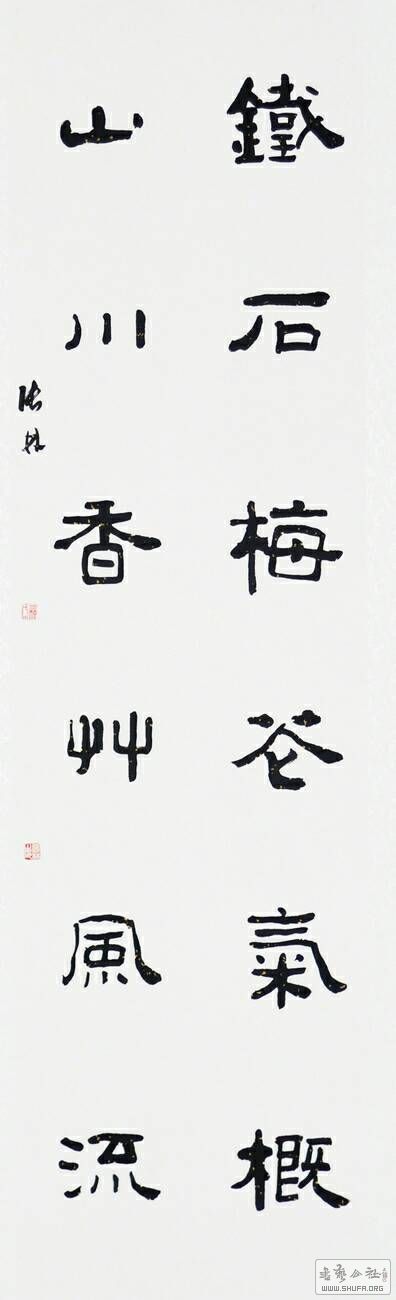 鐵石梅花氣概
山川香艸風流
WWW.SHUFA.ORG